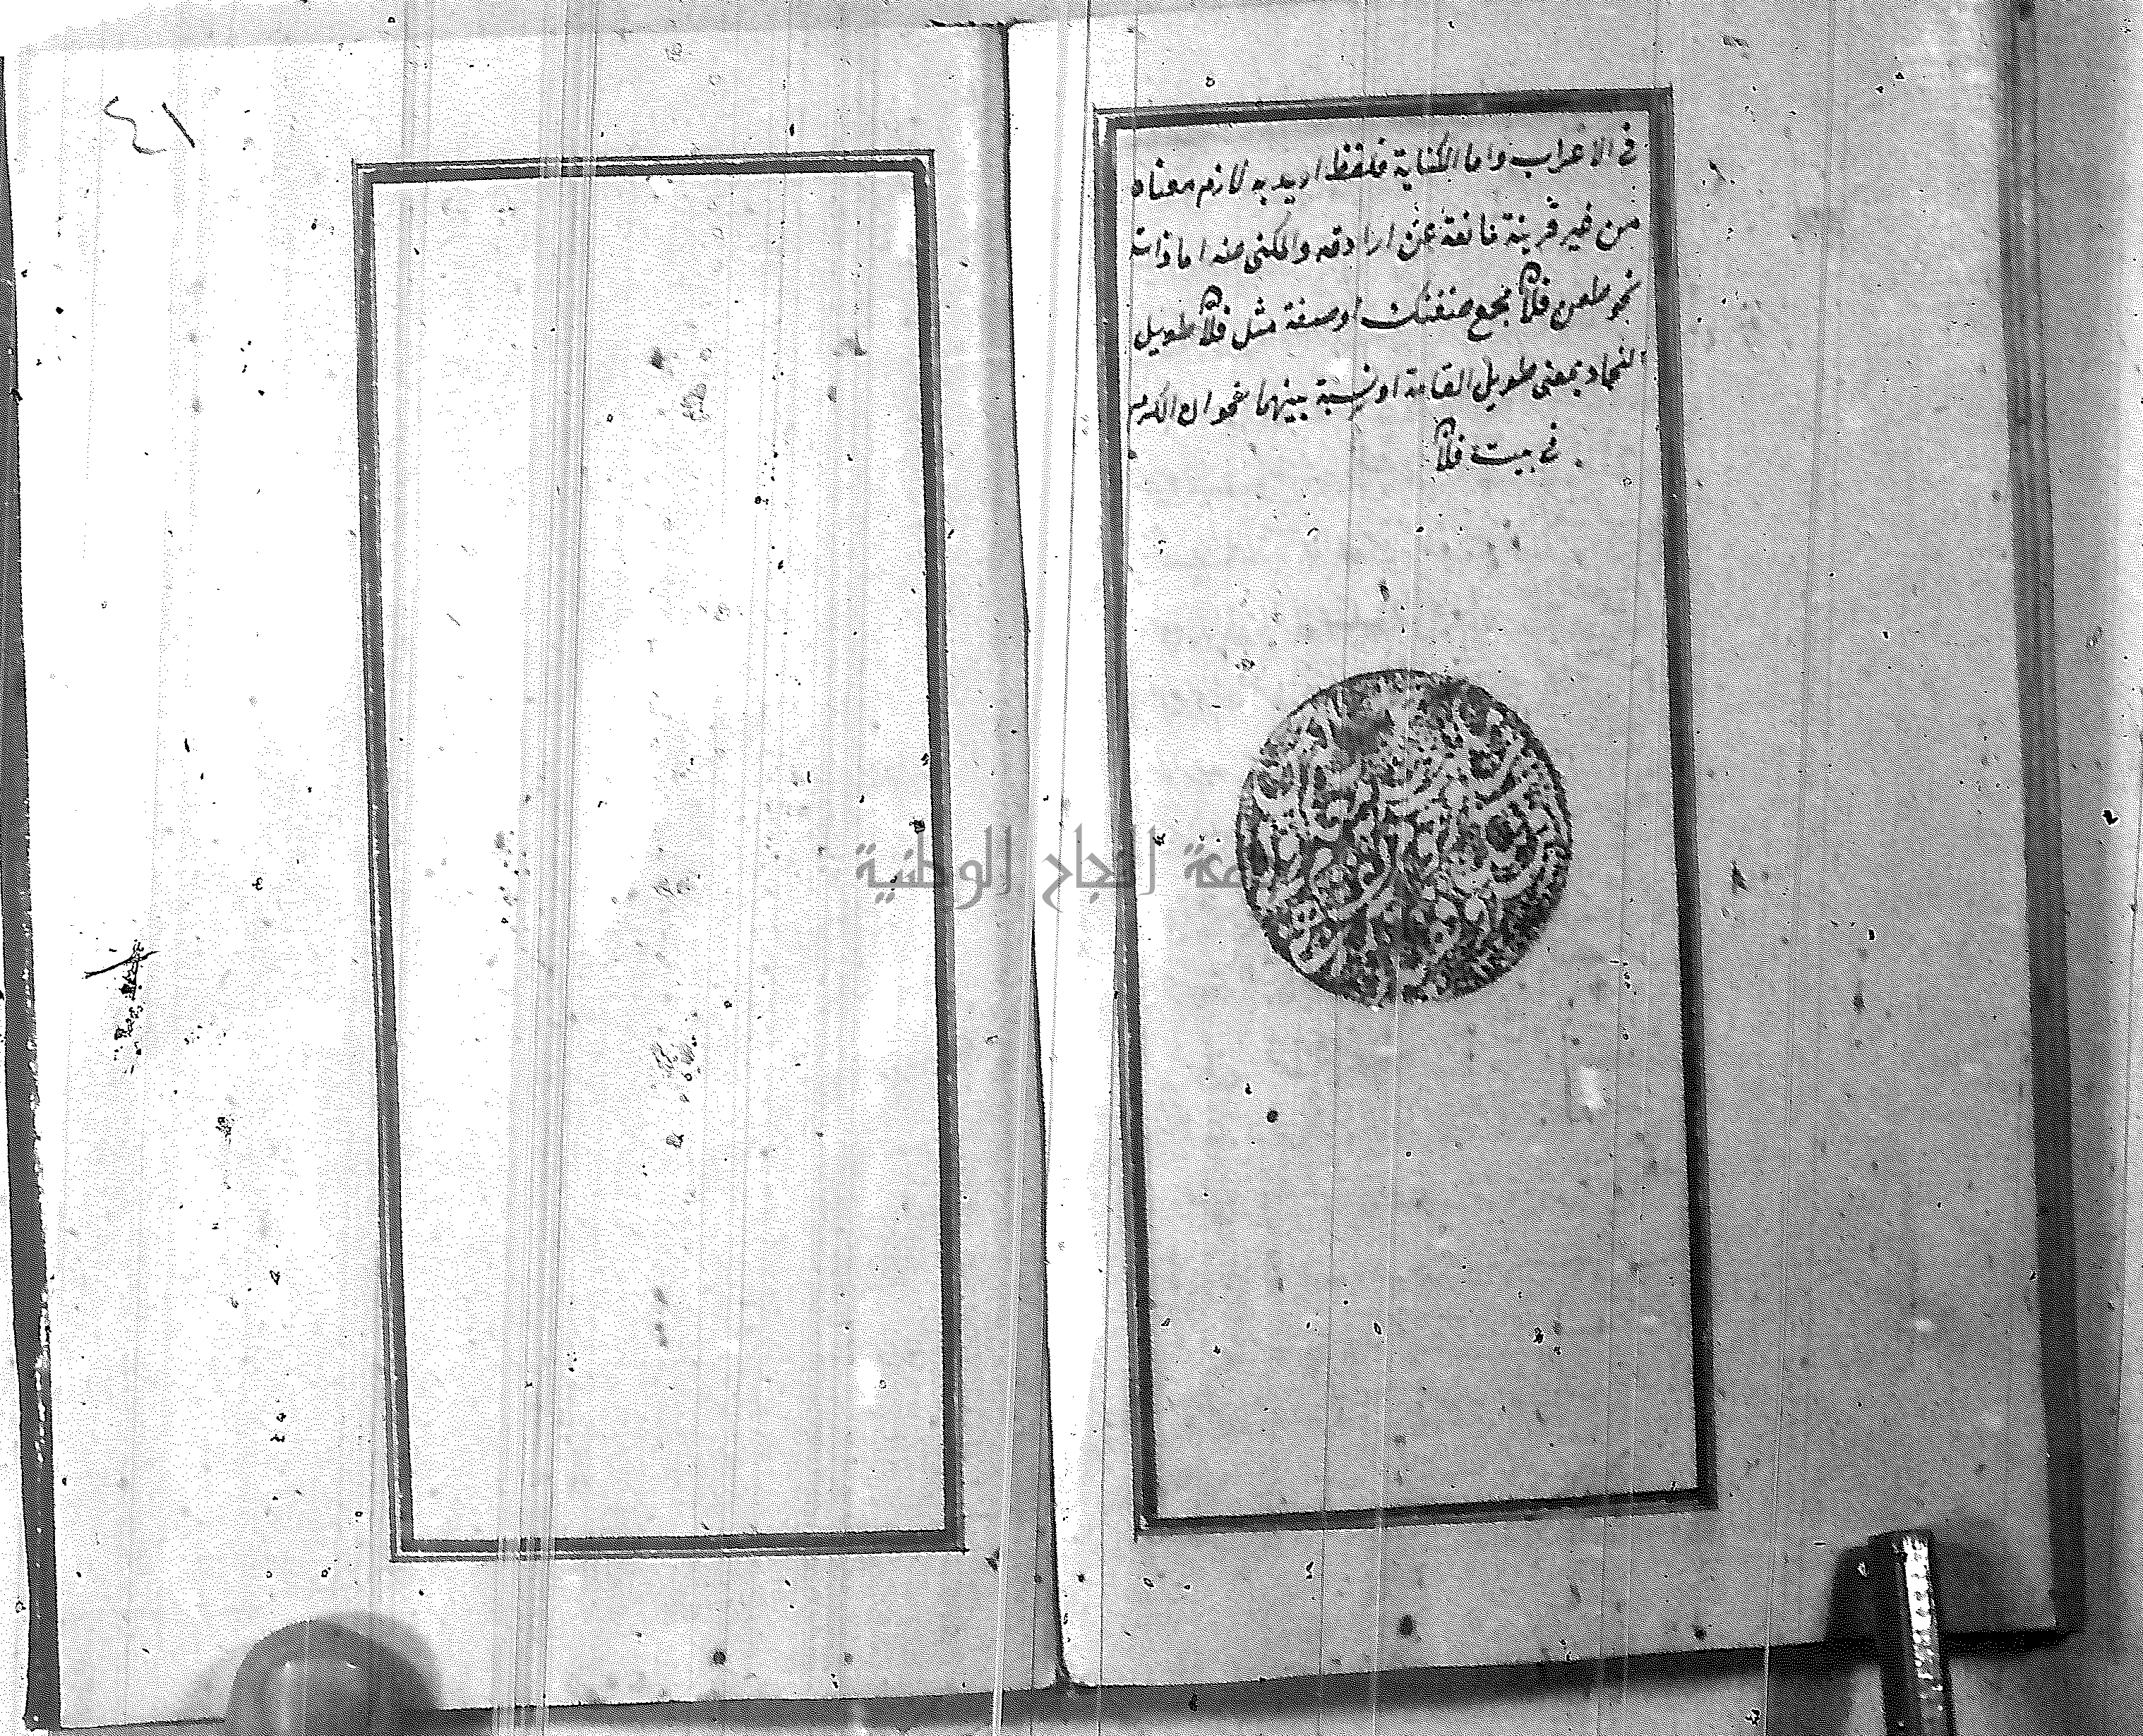 في الاعراب واما الكناية فلفظ اريد به لازم معناه
من غير قرينة مانعة عن ارادته والمكنى عنه اما ذات
نحو طعن فلان مجمع ضغنك او صفة مثل فلان طويل
النجاد بمعنى طويل القامة او نسبة بينهما نحو ان الكرم
في بيت فلان
٤١
النجاح الوطنية